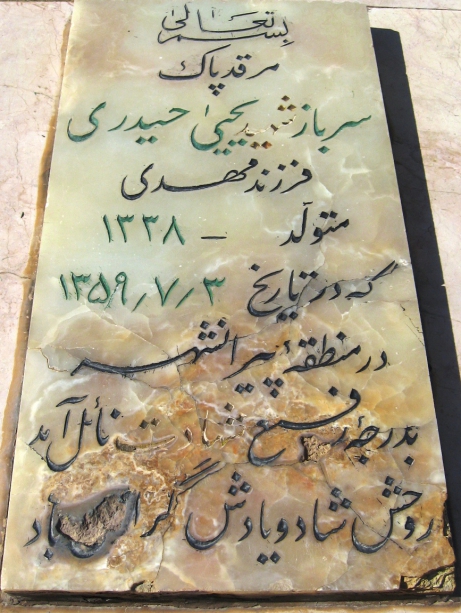 بسمه تعالیٰ
مرقد پاک
سرباز شهید یحییٰ حیدری
فرزند مهدی
متولد - ۱۳۳۸
که در تاریخ ۱۳۵۹/۷/۳
در منطقهٔ پیرانشهر
بدرجهٔ رفیع شهادت نائل آمد
روحش شاد و یادش گرامی باد